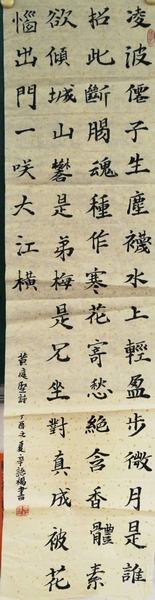 凌波僊子生塵襪水上輕盈步微月是誰
招此斷腸魂種作寒花寄愁絕含香體素
欲傾城山礬是弟梅是兄坐對真成被花
惱出門一咲大江橫
黃庭堅詩 丁酉之夏 書